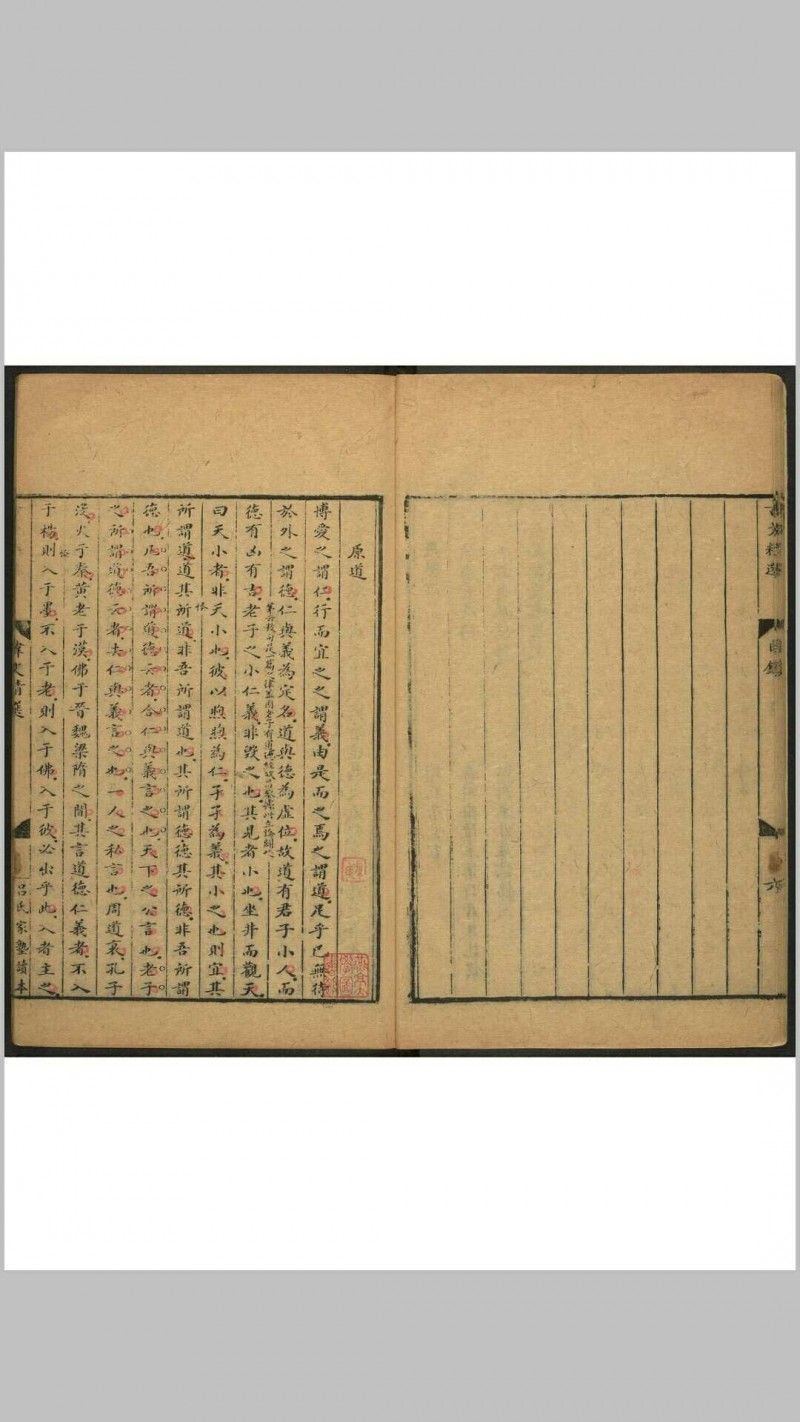 精選
目錄
六
原道
博愛之謂仁行而宜之之謂義由是而之焉之謂道足乎已無待
於外之謂德仁與義為定名道與德為虛位故道有君子小人而
德有凶有吉老子之小仁義非毀之也其見者小也坐井而觀天
曰天小者非天小也彼以煦煦為仁孑孑為義其小之也則宜其
所謂道道其所道非吾所謂道也其所謂德德其所德非吾所謂
德也凡吾所謂道德云者合仁與義言之也天下之公言也老子
之所謂道德云者去仁與義言之也一人之私言也周道衰孔子
沒火于秦黃老于漢佛于晉魏梁隋之間其言道德仁義者不入
于楊則入于墨不入于老則入于佛入于彼必出乎此入者主之
韓文精選
呂氏家塾讀本